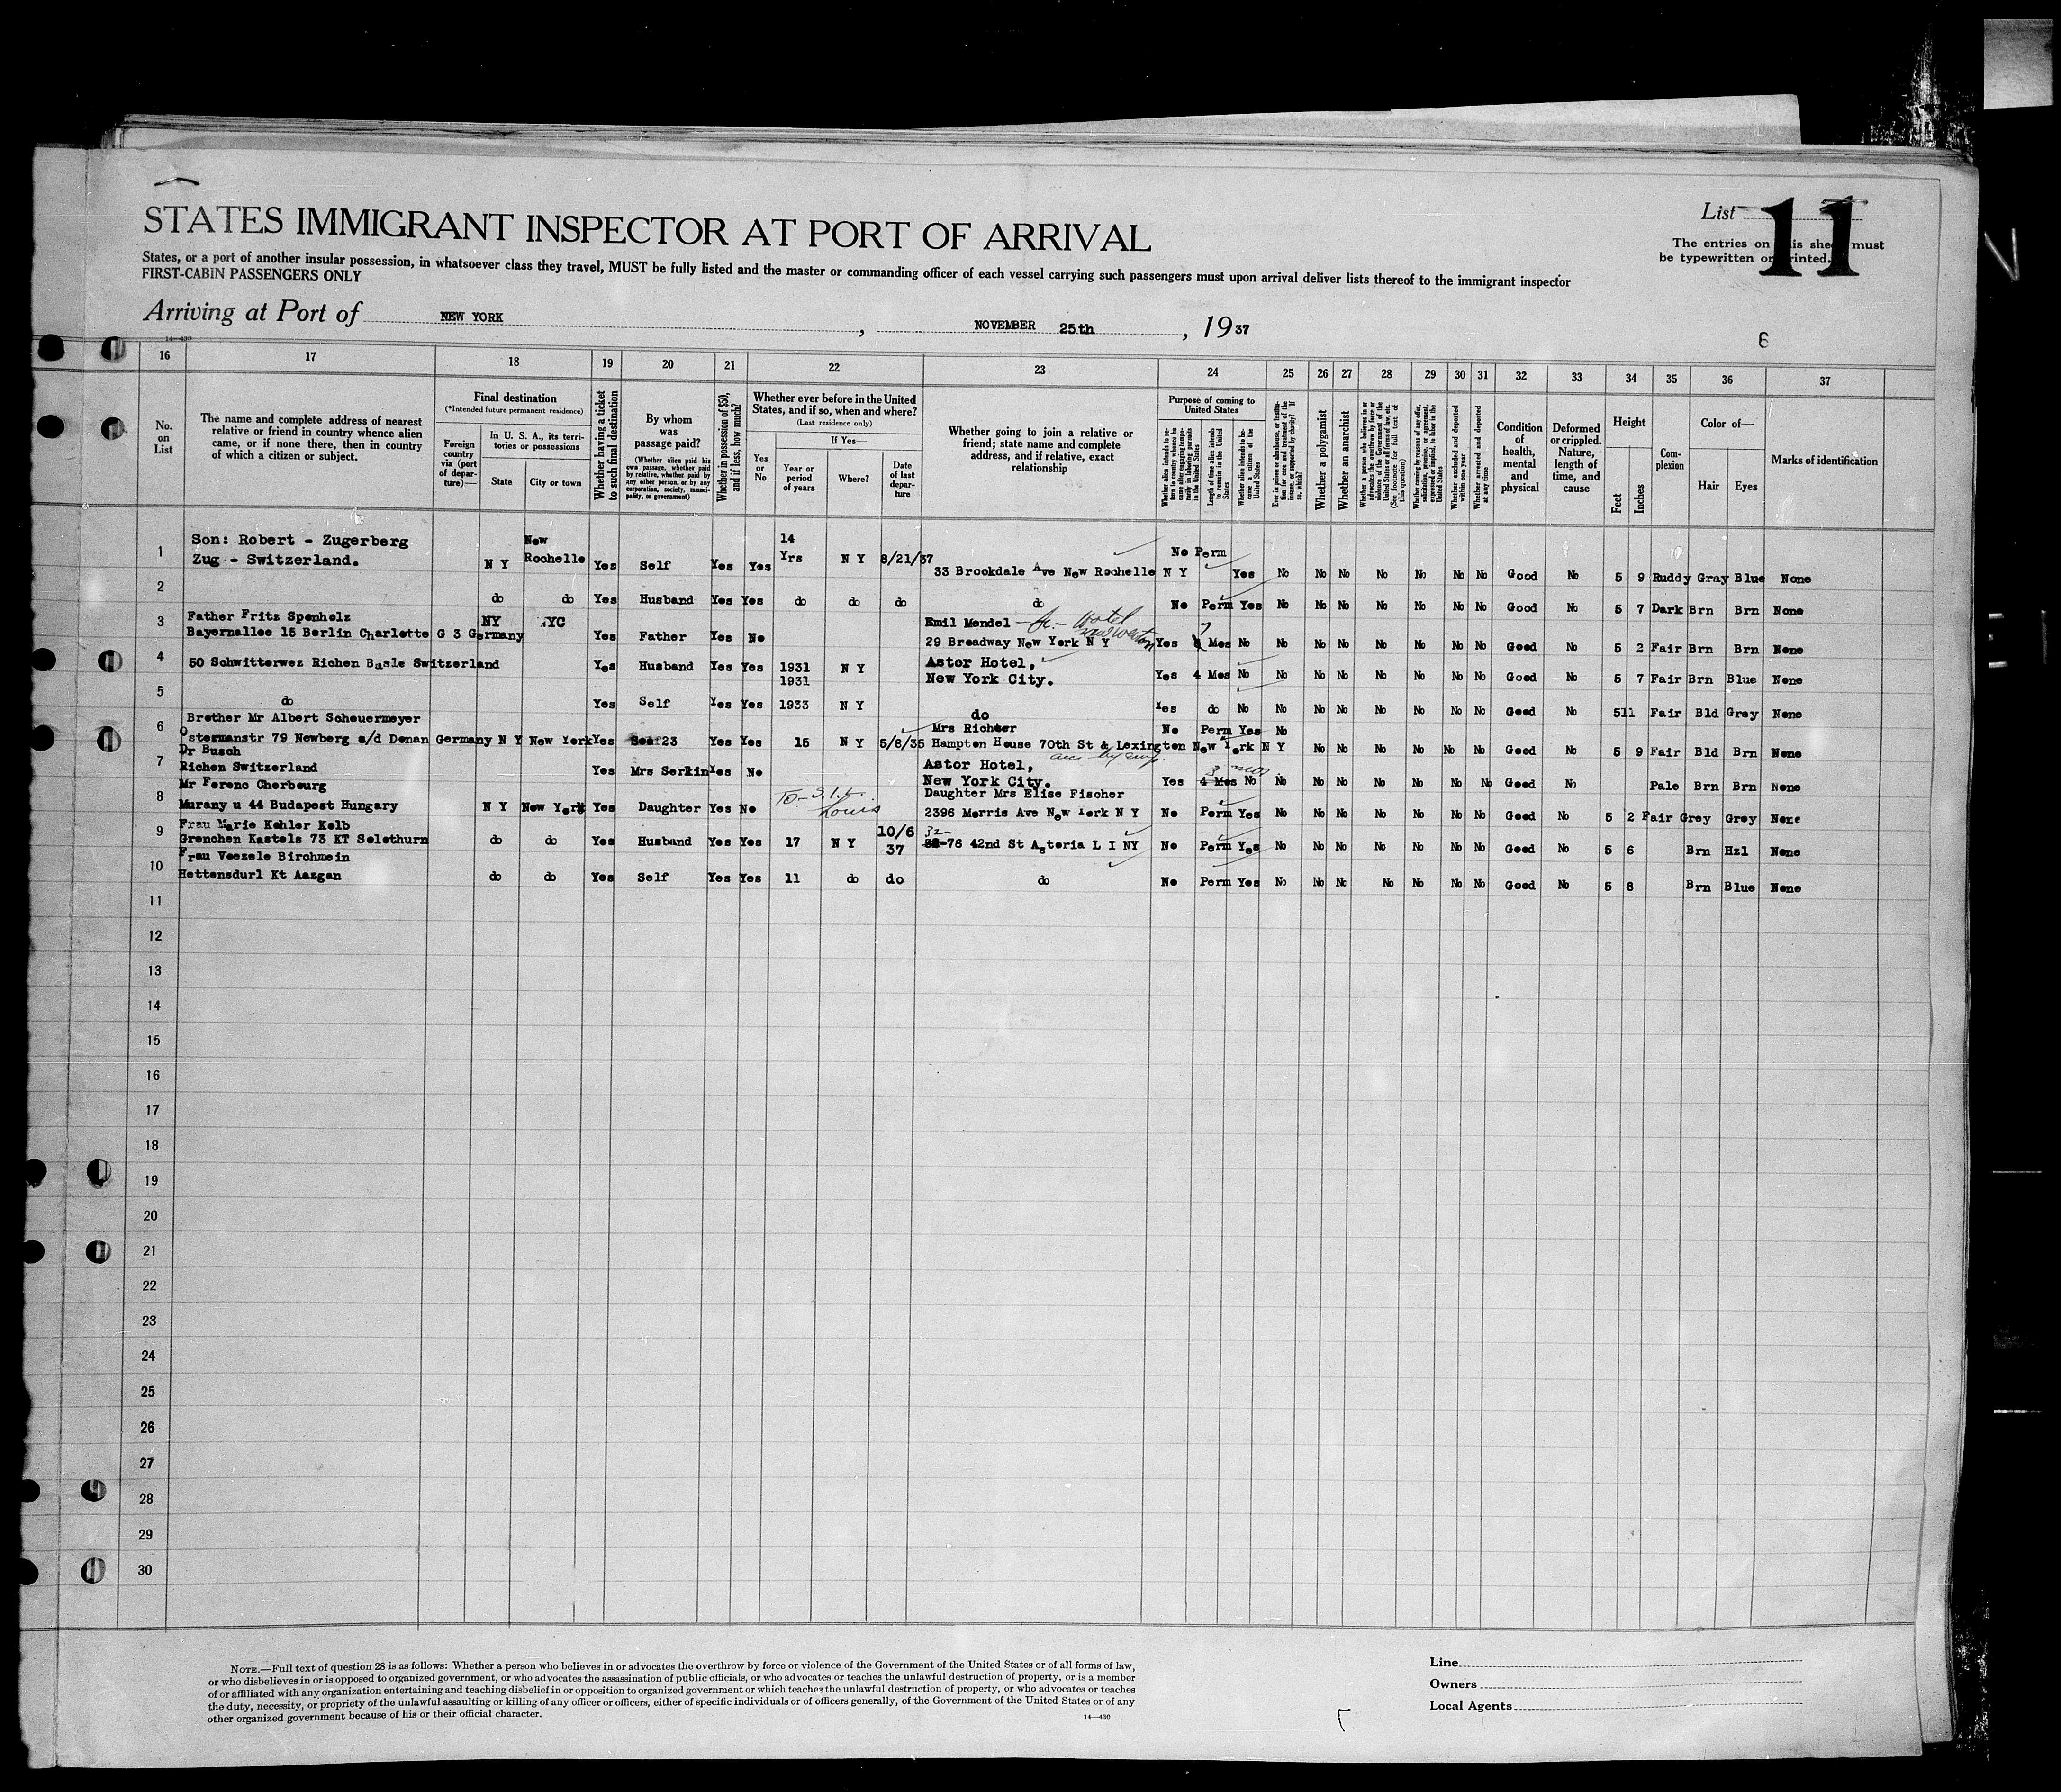 STATES IMMIGRANT INSPECTOR AT PORT OF ARRIVAL
List 11
The entries on this sheet must
be typewritten or printed.
States, or a port of another insular possession, in whatsoever class they travel, MUST be fully listed and the master or commanding officer of each vessel carrying such passengers must upon arrival deliver lists thereof to the immigrant inspector
FIRST-CABIN PASSENGERS ONLY
Arriving at Port of NEW YORK, NOVEMBER 25th, 1937
6
14—430
16 17 18 19 20 21 22 23 24 25 26 27 28 29 30 31 32 33 34 35 36 37
No. on List
The name and complete address of nearest relative or friend in country whence alien came, or if none there, then in country of which a citizen or subject.
Final destination
(*Intended future permanent residence)
Foreign country via (port of departure)—
In U. S. A., its territories or possessions
State
City or town
Whether having a ticket to such final destination
By whom was passage paid?
(Whether alien paid his own passage, whether paid by relative, whether paid by any other person, or by any corporation, society, municipality, or government)
Whether in possession of $50, and if less, how much?
Whether ever before in the United States, and if so, when and where?
(Last residence only)
Yes or No
If Yes—
Year or period of years
Where?
Date of last departure
Whether going to join a relative or friend; state name and complete address, and if relative, exact relationship
Purpose of coming to United States
Length of time alien intends to remain in the United States
Whether alien intends to become a citizen of the United States
Whether a polygamist
Whether an anarchist
Whether excluded and deported within one year
Whether arrested and deported at any time
Condition of health, mental and physical
Deformed or crippled. Nature, length of time, and cause
Height
Feet
Inches
Complexion
Color of—
Hair
Eyes
Marks of identification
1 Son: Robert - Zugerberg New 14
Zug - Switzerland. N Y Rochelle Yes Self Yes Yes Yrs N Y 8/21/37 33 Brookdale Ave New Rochelle N Y No Perm Yes No No No No No No No Good No 5 9 Ruddy Gray Blue None
2 do do Yes Husband Yes Yes do do do do No Perm Yes No No No No No No No Good No 5 7 Dark Brn Brn None
3 Father Fritz Spenholz NY NYC Emil Mendel Hotel
Bayernallee 15 Berlin Charlotte G 3 Germany Yes Father Yes No 29 Breadway New York N Y Yes 7 Mos No No No No No No No No Good No 5 2 Fair Brn Brn None
4 50 Schwitterwez Richen Basle Switzerland Yes Husband Yes Yes 1931 N Y Astor Hotel,
1931 New York City. Yes 4 Mos No No No No No No No No Good No 5 7 Fair Brn Blue None
5 do Yes Self Yes Yes 1933 N Y do Yes do No No No No No No No No Good No 511 Fair Bld Grey None
6 Brother Mr Albert Scheuermeyer Mrs Richter No Perm Yes No
Ostermanstr 79 Newberg a/d Donan Germany N Y New York Yes 23 Yes Yes 15 N Y 5/8/35 Hampton House 70th St & Lexington New York N Y No No No No No No Good No 5 9 Fair Bld Brn None
7 Dr Busch Astor Hotel, 3 mos
Richen Switzerland Yes Mrs Serkin Yes No New York City. Yes 4 Mos No No No No No No No No Good No Pale Brn Brn None
8 Mr Ferenc Cherbourg To S.I. Louis Daughter Mrs Elise Fischer
Murany u 44 Budapest Hungary N Y New York Yes Daughter Yes No 2396 Morris Ave New York N Y No Perm Yes No No No No No No No Good No 5 2 Fair Grey Grey None
9 Frau Marie Kohler Kolb 10/6 32-
Grenchen Kastels 73 KT Solothurn do do Yes Husband Yes Yes 17 N Y 37 76 42nd St Astoria L I NY No Perm Yes No No No No No No No Good No 5 6 Brn Hzl None
10 Frau Veezele Birchmein
Hettensdurl Kt Aazgan do do Yes Self Yes Yes 11 do do do No Perm Yes No No No No No No No Good No 5 8 Brn Blue None
11
12
13
14
15
16
17
18
19
20
21
22
23
24
25
26
27
28
29
30
NOTE.—Full text of question 28 is as follows: Whether a person who believes in or advocates the overthrow by force or violence of the Government of the United States or of all forms of law,
or who disbelieves in or is opposed to organized government, or who advocates the assassination of public officials, or who advocates or teaches the unlawful destruction of property, or is a member
of or affiliated with any organization entertaining and teaching disbelief in or opposition to organized government or which teaches the unlawful destruction of property, or who advocates or teaches
the duty, necessity, or propriety of the unlawful assaulting or killing of any officer or officers, either of specific individuals or of officers generally, of the Government of the United States or of any
other organized government because of his or their official character.
14—430
Line
Owners
Local Agents